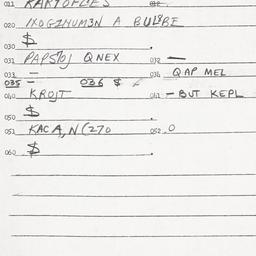 011 KARTOFLES 012
020 1XOGZHUM3N A BUL8BE
$
030 .
031 PAPS7OJ QNEX 032 —
033 — 034 QAP MEL
035 — 036 $
040 KROJT 041 — BUT KEPL
$
050 .
051 KACA, N(270 052 0
$
060 .